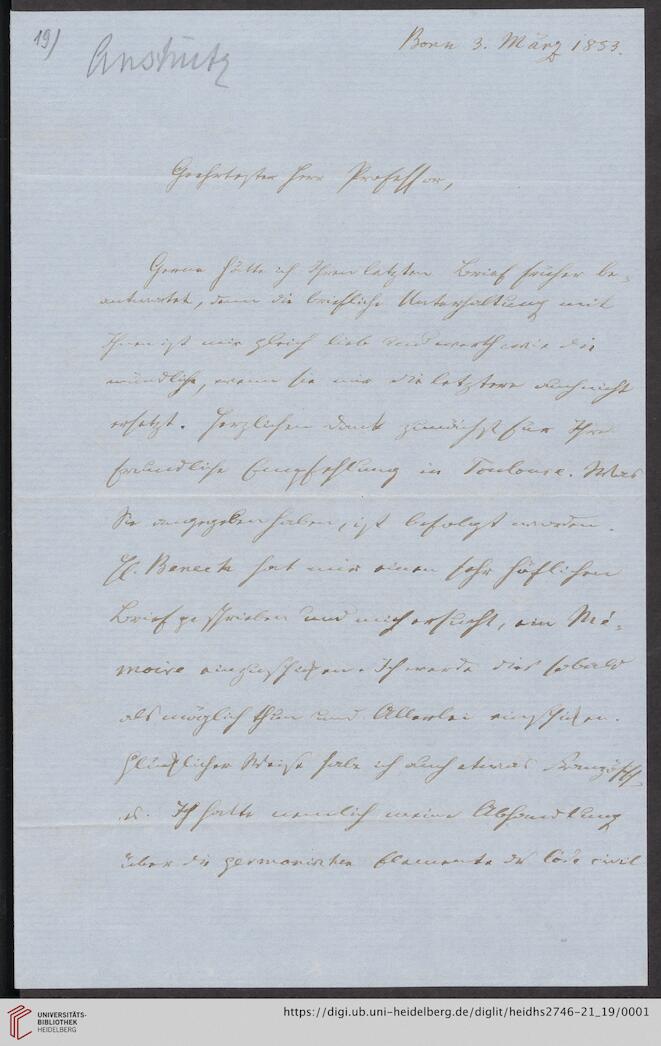 19)
Anschütz
Bonn 3. März 1853.
Geehrtester Herr Professor,
Gerne hätte ich Ihren letzten Brief früher be-
antwortet, denn die briefliche Unterhaltung mit
Ihnen ist mir gleich lieb und werth wie die
mündliche, wenn sie mir die letztere auch nicht
ersetzt. Herzlichen Dank zunächst für Ihre
freundliche Empfehlung in Toulouse. Was
Sie angegeben haben, ist befolgt worden.
H. Benech hat mir einen sehr höflichen
Brief geschrieben und mich ersucht, ein Mé-
moire einzuschicken. Ich werde dies sobald
als möglich thun und Allerlei einschicken.
Glücklicher Weise habe ich auch etwas Französisch
es. Ich hatte nemlich meine Abhandlung
über die germanischen Elemente des Code civil
UNIVERSITÄTS-
BIBLIOTHEK
HEIDELBERG
https://digi.ub.uni-heidelberg.de/diglit/heidhs2746-21_19/0001